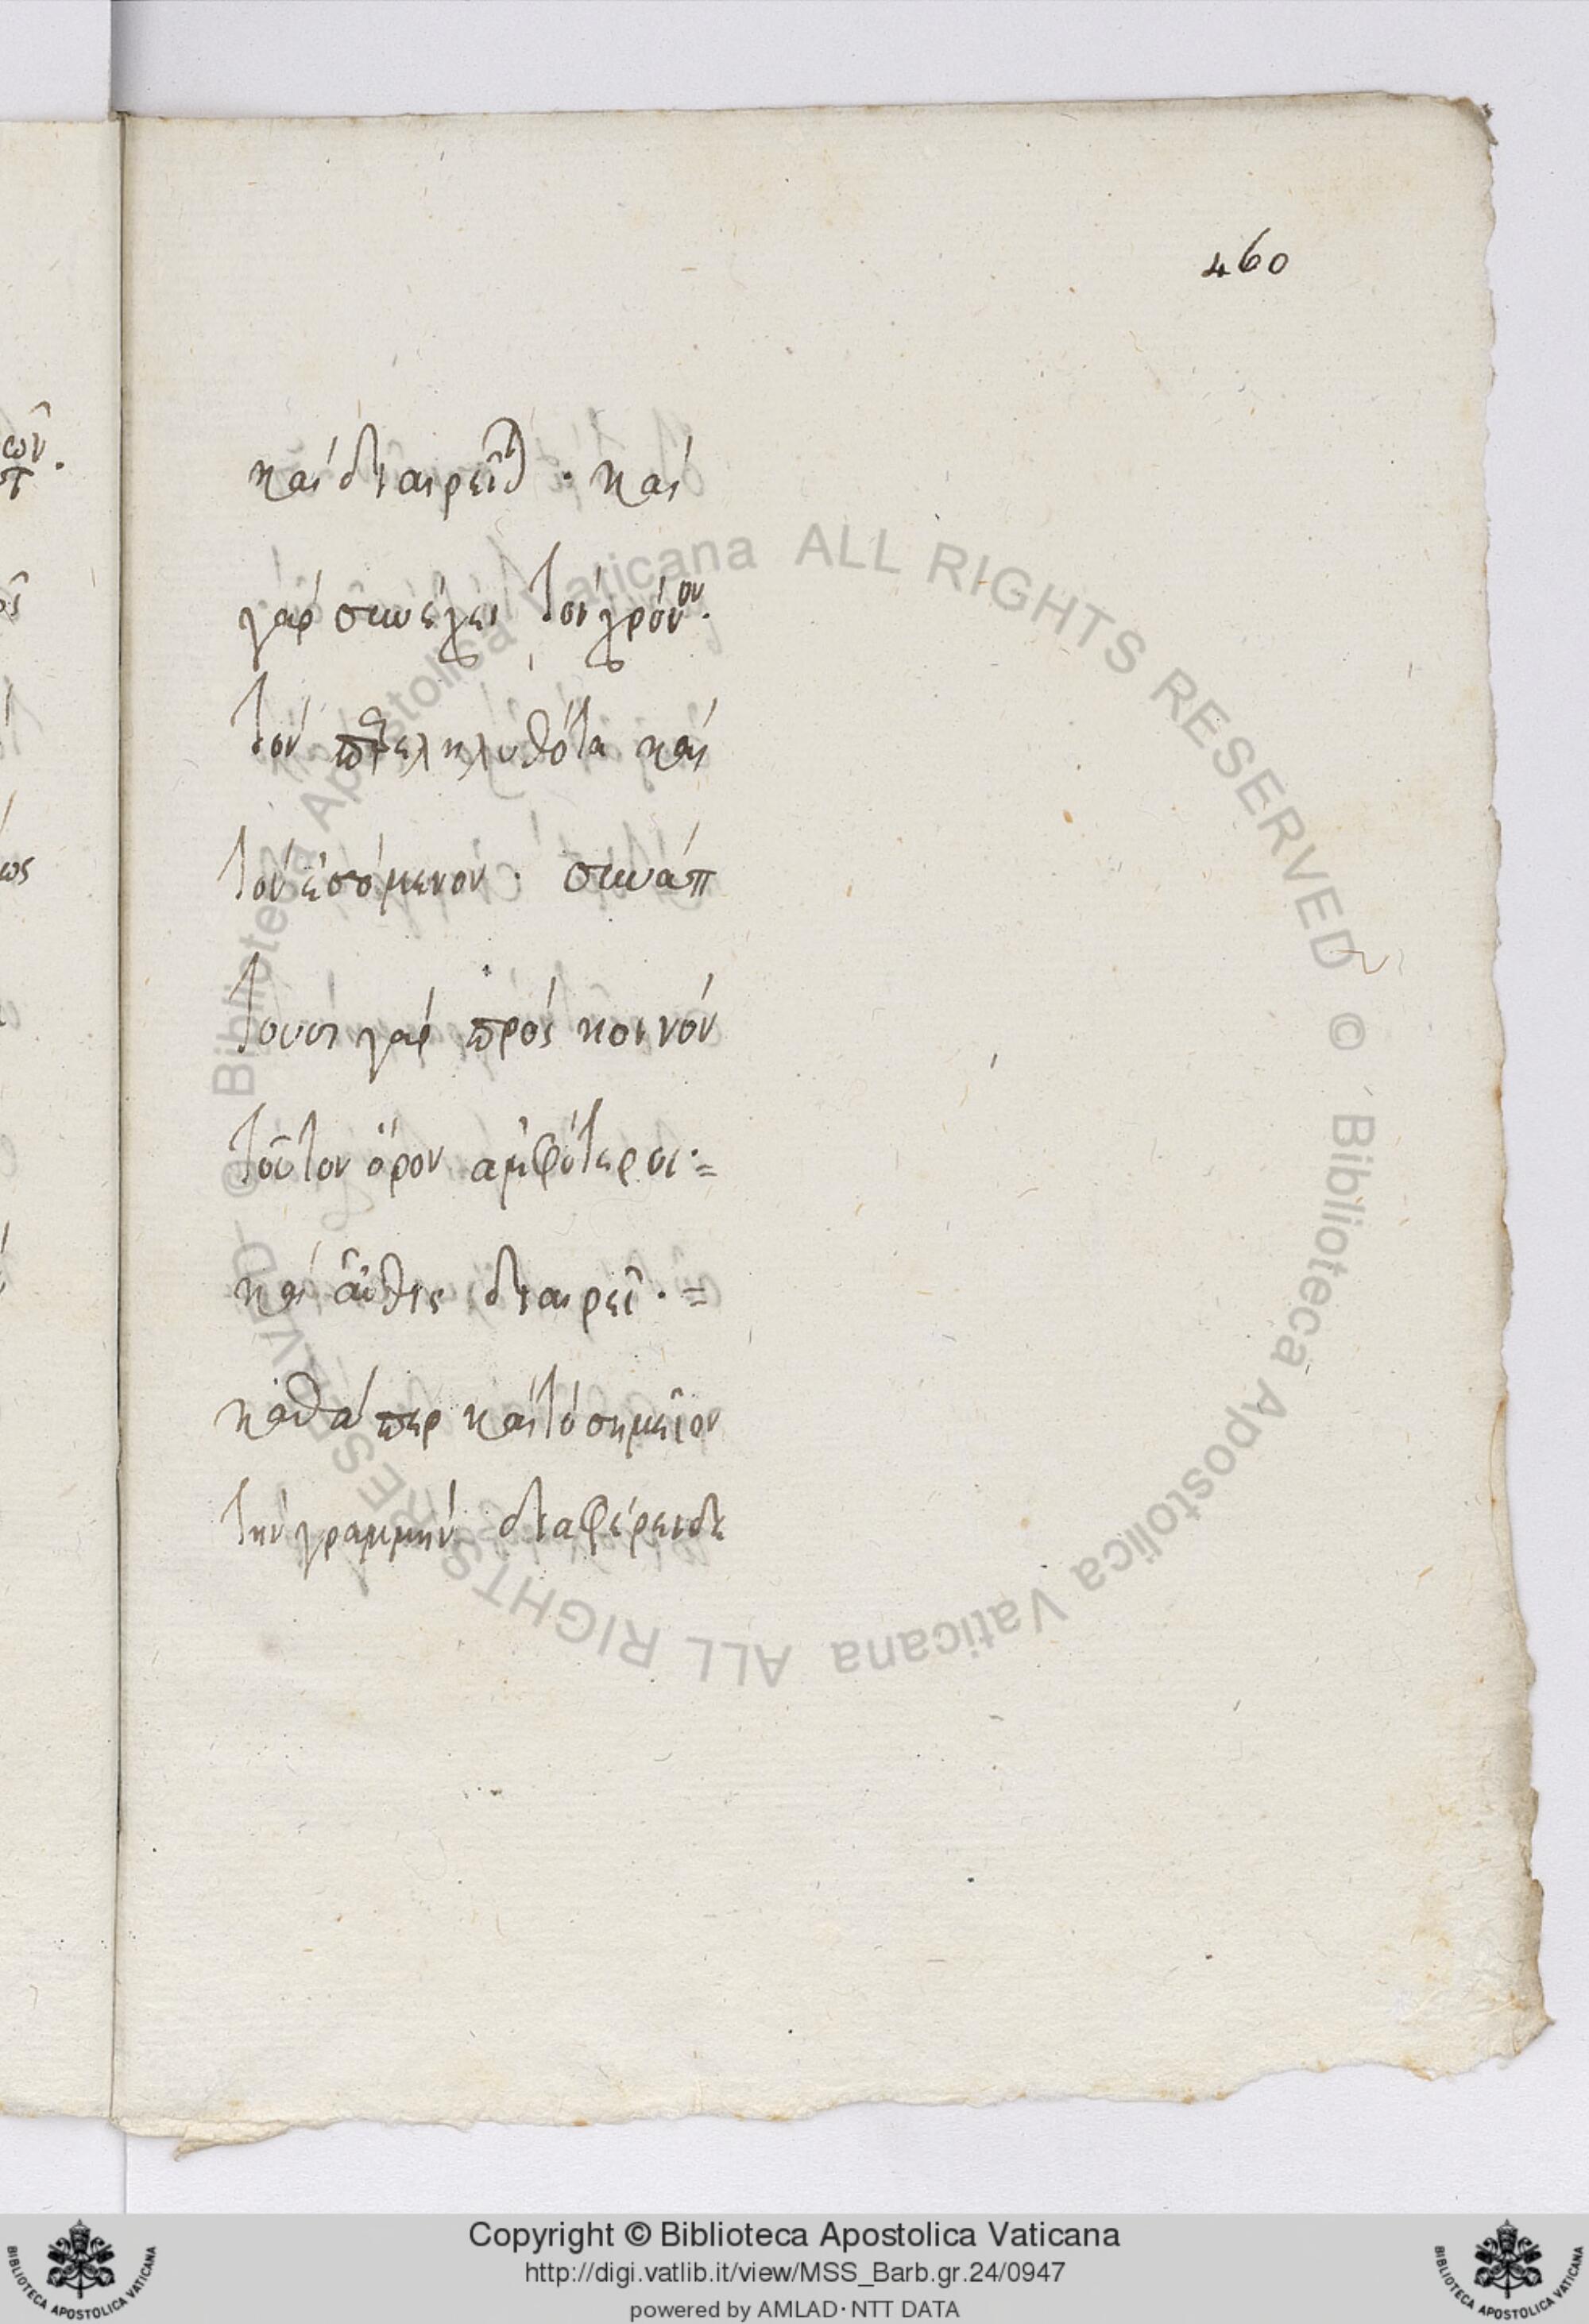 460
καὶ διαιρεῖται · καὶ
γὰρ συνέχει τὸν χρόνον.
τὸν παρεληλυθότα καὶ
τὸν ἐσόμενον · συνάπ
τουσι γὰρ πρὸς κοινὸν
τοῦτον ὅρον ἀμφότεροι·=
καὶ αὖθις διαιρεῖ·=
καθάπερ καὶ τὸ σημεῖον
τὴν γραμμήν διαφέρει δὲ
© Biblioteca Apostolica Vaticana ALL RIGHTS RESERVED © Biblioteca Apostolica Vaticana ALL RIGHTS RESERVED
Copyright © Biblioteca Apostolica Vaticana
http://digi.vatlib.it/view/MSS_Barb.gr.24/0947
powered by AMLAD·NTT DATA
BIBLIOTECA APOSTOLICA VATICANA
BIBLIOTECA APOSTOLICA VATICANA